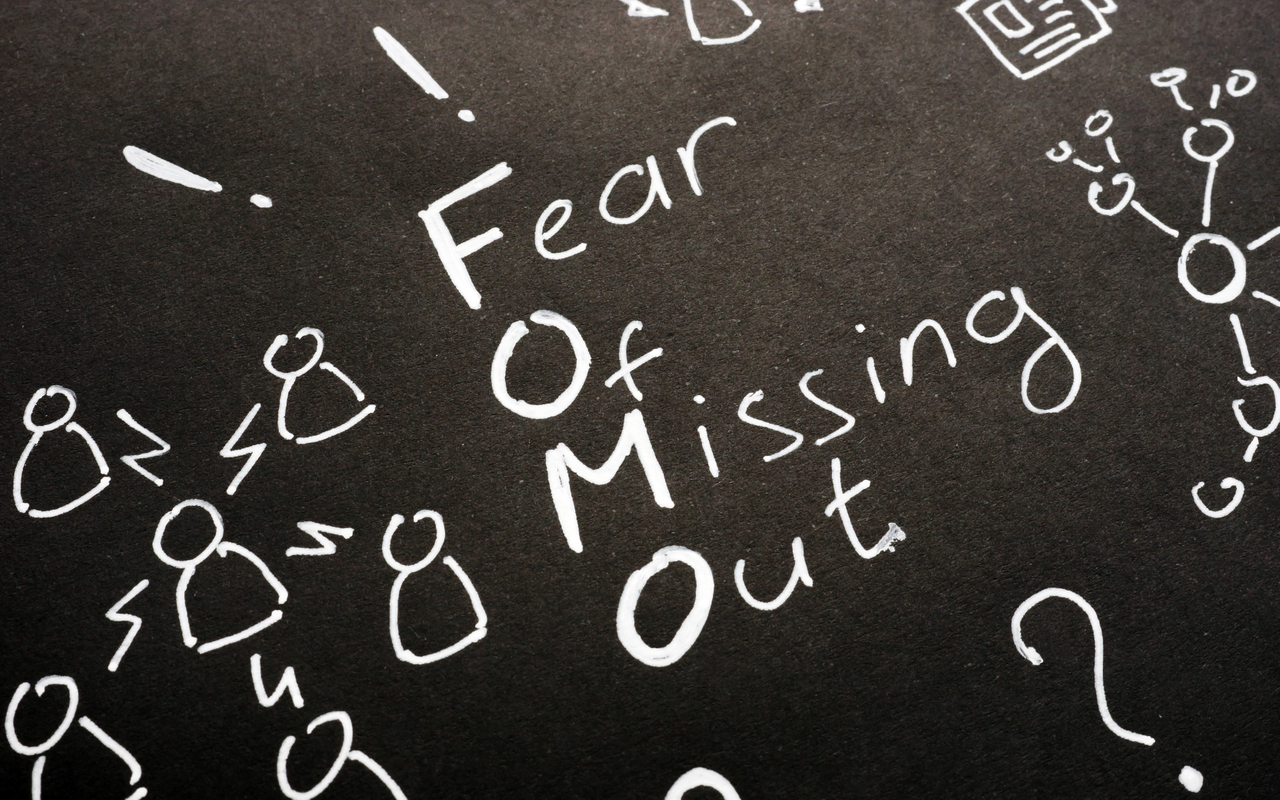 Fear
Of
Missing
Out
!
!
?